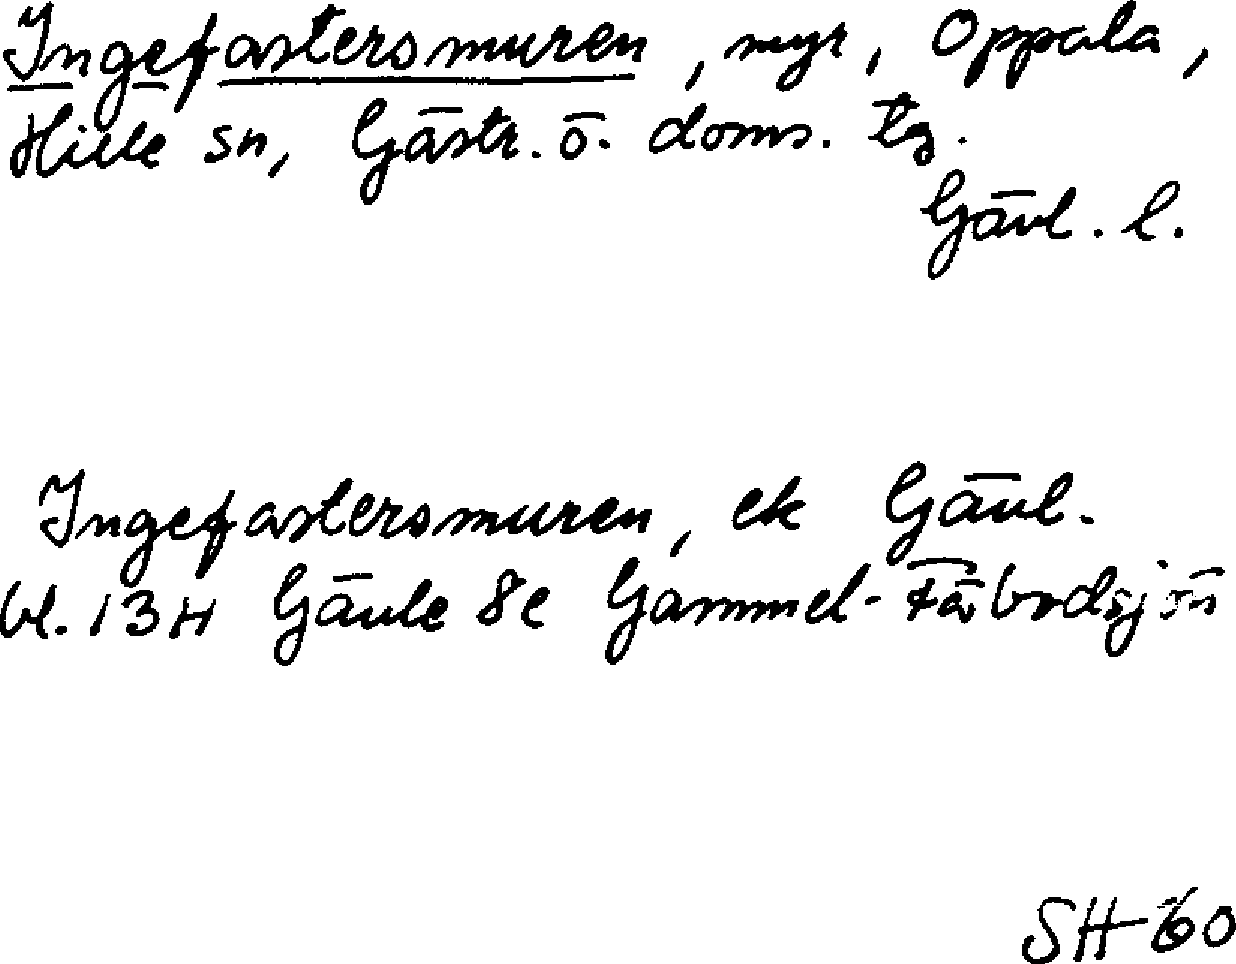 Ingefastersmuren, myr, Oppala,
Hille sn, Gästr. ö. doms. tg.
Gävl. l.
Ingefastersmuren, ek Gävl.
bl. 13H Gävle 8e Gammel-Färbodsjön
SH-60